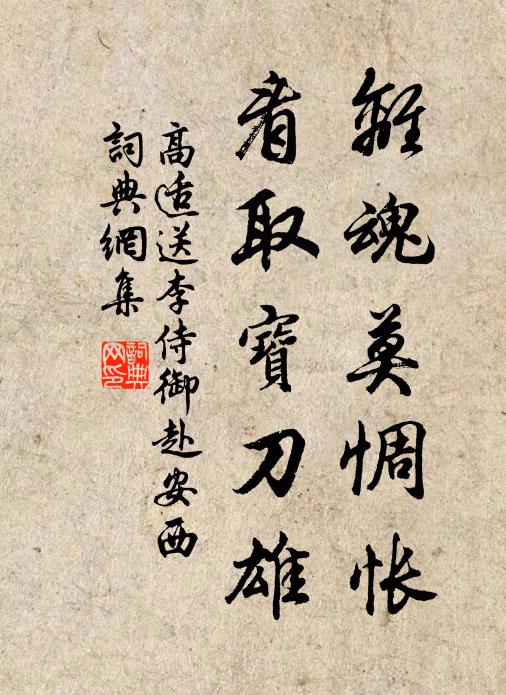 離魂莫惆悵
看取寶刀雄
高適送李侍御赴安西
詞典網集
詞典網印